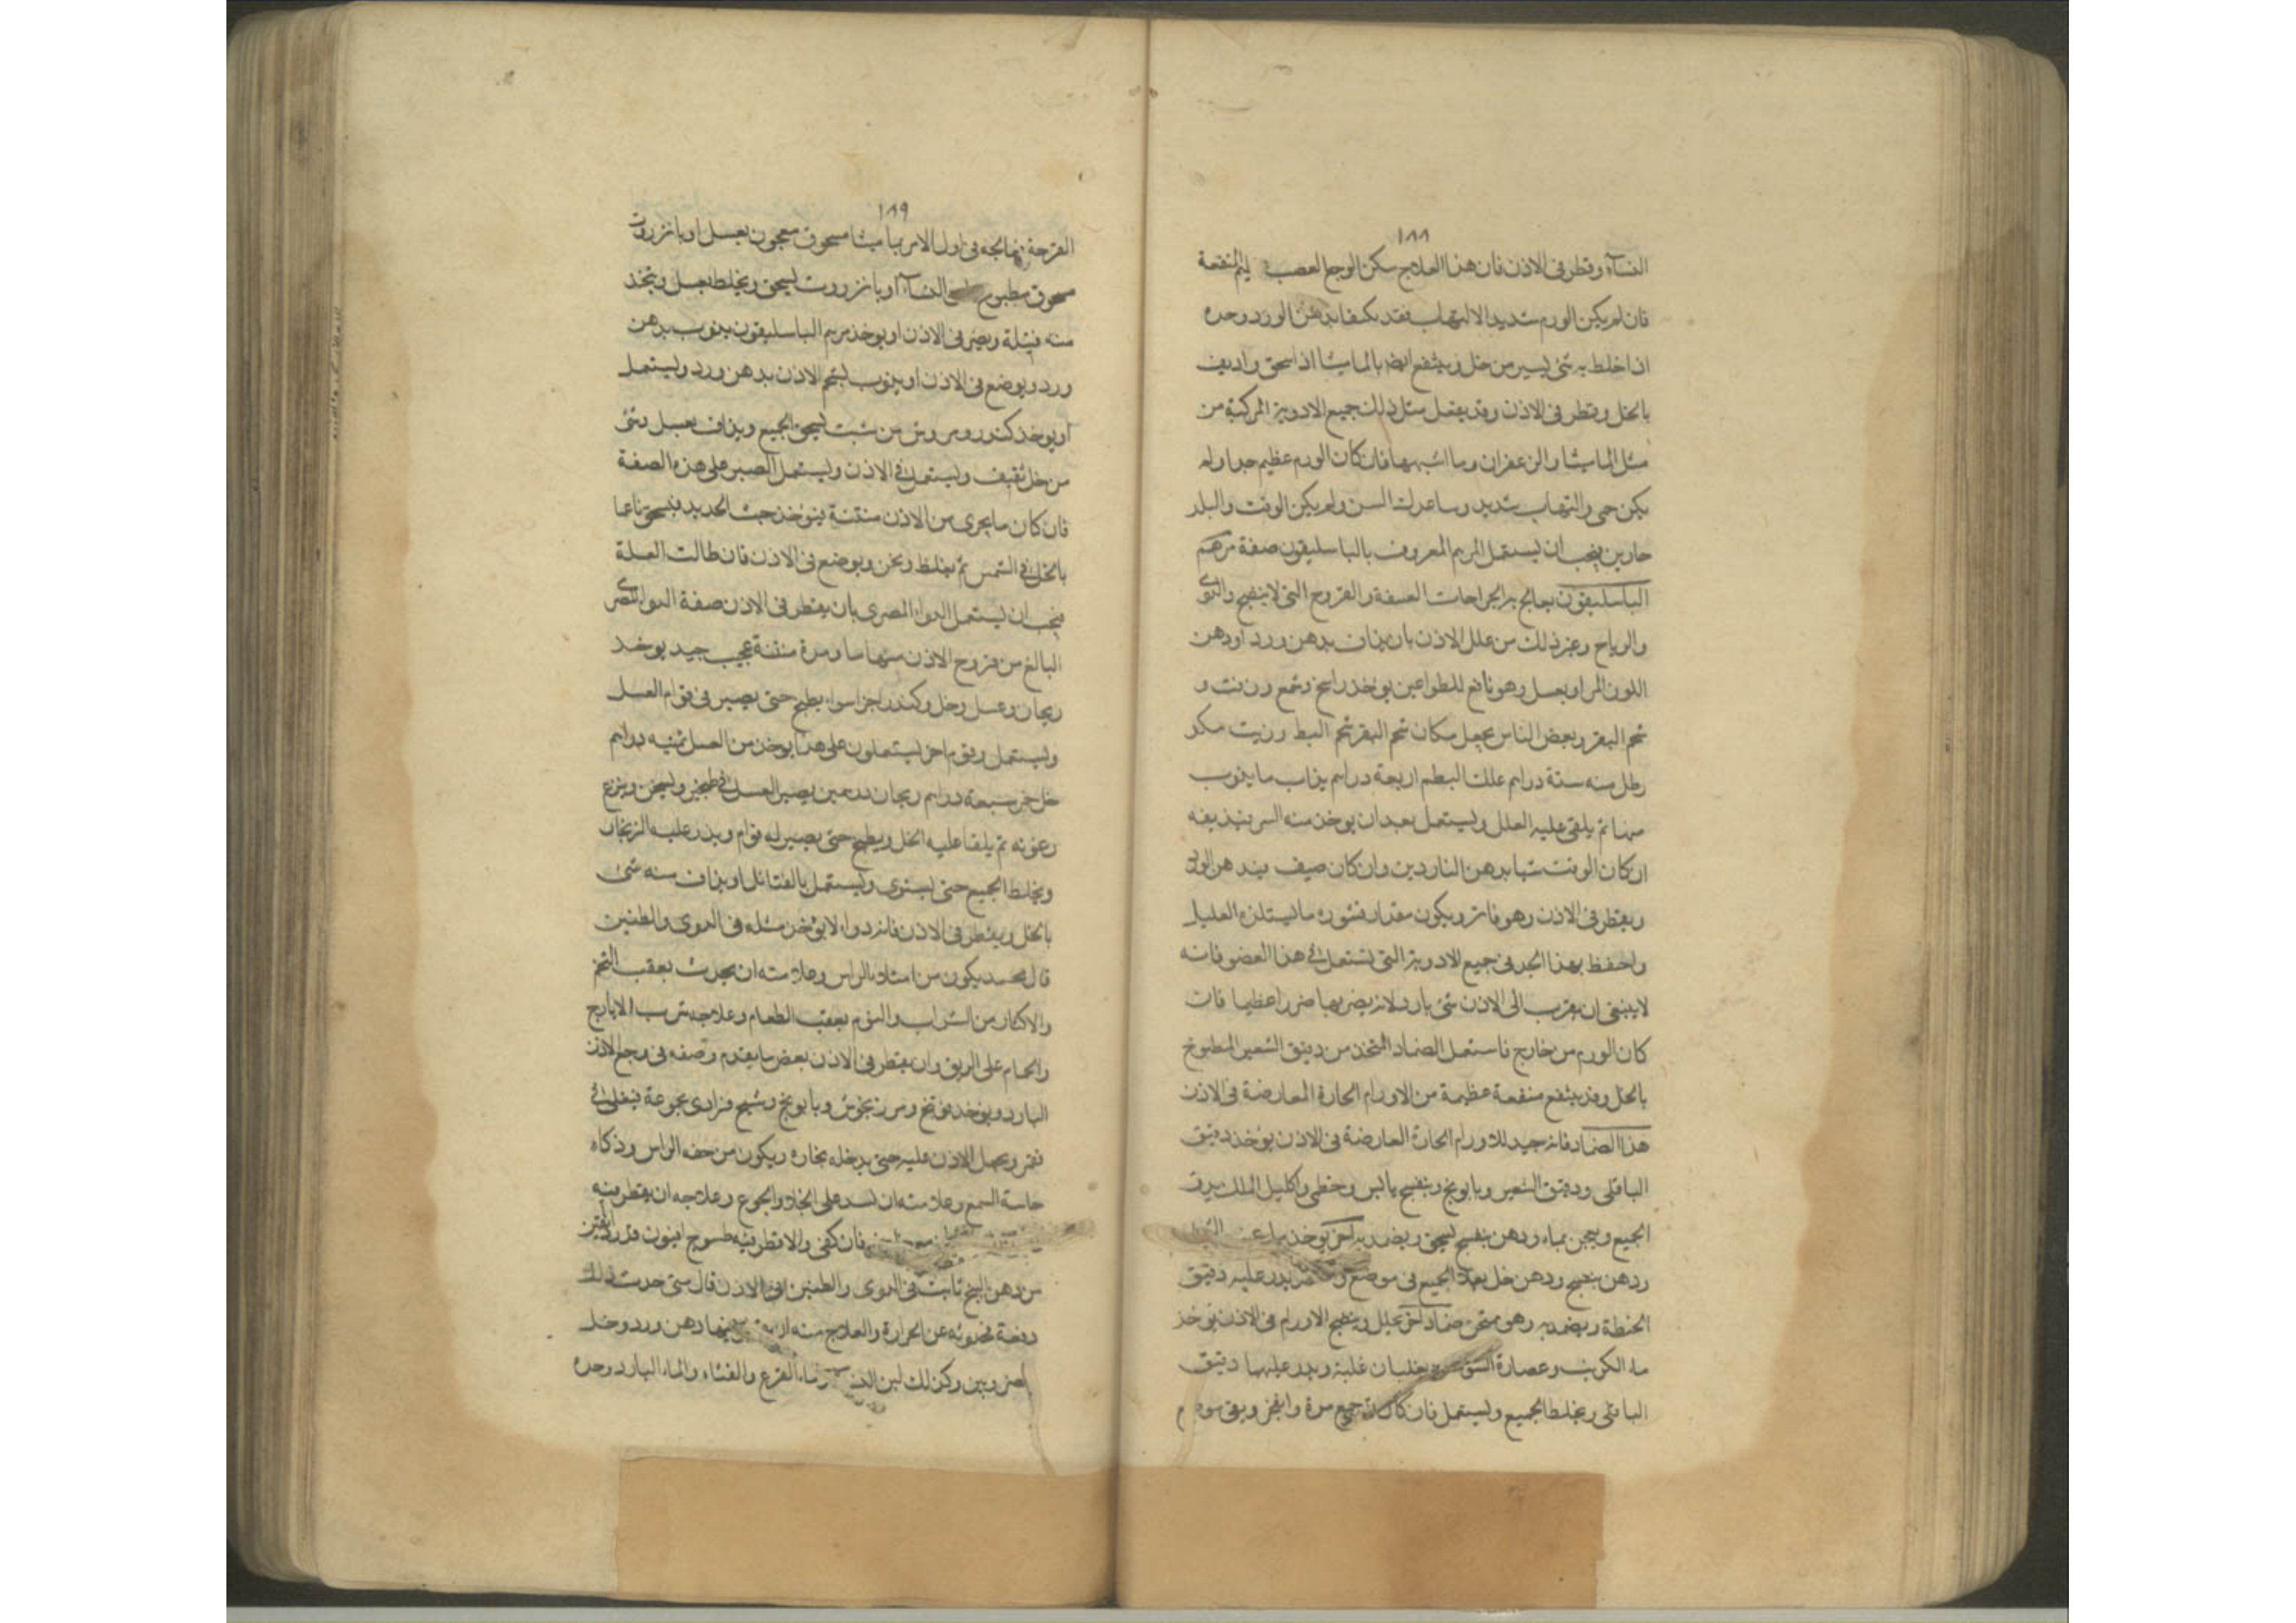 ١٨٨
النساء وقطر في الاذن فان هذا العلاج سكن الوجع الصعب المنفعة
فان لم يكن الورم شديد الالتهاب فقد يكتفا بدهن الورد وحده
اذا خلط به شئ يسير من خل وينفع ايضا بالماميثا اذا سحق واديف
بالخل وقطر في الاذن وقد يفعل مثل ذلك جميع الادوية المركبة من
مثل الماميثا والزعفران وما اشبهها فان كان الورم عظيم جدا ولم
يكن حمى والتهاب شديد وساعدك السن ولم يكن الوقت والبلد
حارين فيجب ان يستعمل المرهم المعروف بالباسليقون صفة مرهم
الباسليقون يعالج به الجراحات العسفة والقروح التى لا ينضج والدوى
والرياح وغير ذلك من علل الاذن بان يذاف بدهن ورد او دهن
اللوز المر او بعسل وهو نافع للطواعين يوخذ راتينج وشمع وزفت و
شحم البقر وبعض الناس يجعل مكان شحم البقر شحم البط وزيت مكد
رطل منه ستة دراهم علك البطم اربعة دراهم يذاب ما يذوب
منها ثم يلقى عليه العلل ويستعمل بعد ان يوخذ منه السر فيذيفه
ان كان الوقت شتا بدهن الناردين وان كان صيف فبدهن الورد
ويقطر في الاذن وهو فاتر ويكون مقدار فتوره ما يستلذه العليل
واحفظ بهذا الحد في جميع الادوية التى تستعمل في هذا العضو فانه
لا ينبغى ان يقرب الى الاذن شئ بارد لانه يضر بها ضررا عظيما فان
كان الورم من خارج فاستعمل الضماد المتخذ من دقيق الشعير المطبوخ
بالخل وقد ينفع منفعة عظيمة من الاورام الحارة العارضة في الاذن
هذا الضماد فانه جيد للاورام الحارة العارضة في الاذن يوخذ دقيق
الباقلى ودقيق الشعير وبابونج وبنفسج يابس وخطمى واكليل الملك يدق
الجميع ويعجن بماء ودهن بنفسج يسحق ويضمد به آخر يوخذ ماء عنب الثعلب
ودهن بنفسج ودهن خل بعلا الجميع في موضع يدر عليه دقيق
الحنطة ويضمد به وهو ممتحن ضماد آخر يحلل وينضج الاورام في الاذن يوخذ
ماء الكرنب وعصارة يغليان غلية ويدر عليها دقيق
الباقلى ويخلط الجميع ويستعمل فان كان تجمع مرة وانفجر وبقى موضع
١٨٩
القرحة فعالجه في اول الامر بماميثا مسحوق معجون بعسل او بانزروت
مسحوق مطبوخ النساء او بانزروت يسحق ويخلط بعسل ويتخذ
منه فتيلة ويصير في الاذن او يوخذ مرهم الباسليقون يذوب بدهن
ورد ويوضع في الاذن او يذوب بشحم الاذن بدهن ورد ويستعمل
او يوخذ كندر ومر ومن شبت يسحق الجميع ويذاف بعسل وشئ
من خل ثقيف ويستعمل في الاذن ويستعمل الصبر على هذه الصفة
فان كان ما يجرى من الاذن منتنة فيؤخذ خبث الحديد فيسحق ناعما
بالخل في الشمس ثم يغلظ ويخن ويوضع في الاذن فان طالت العلة
فيجب ان يستعمل الدواء المصرى بان يقطر في الاذن صفة الدوا المصرى
البالغ من قروح الاذن منها سا ومرة منتنة عجيب جيد يوخذ
ريحان وعسل وخل وكندر اجزا سواء يطبخ حتى يصير في قوام العسل
ويستعمل وقوم اخر يستعملون على هذا يوخذ من العسل ثمنيه دراهم
خل خمر سبعة دراهم ريحان درهمين يصير العسل في طنجير ويسخن وينزع
رغوته ثم يلقا عليه الخل ويطبخ حتى يصير له قوام ويذر عليه الزنجار
ويخلط الجميع حتى يستوى ويستعمل بالفتائل او يذاف منه شئ
بالخل ويقطر في الاذن فانه دواء لا يوخذ مثله في الدوى والطنين
قال محمد يكون من امتلاء الراس وعلامته ان يحدث بعقب التخم
والاكثار من الشراب والنوم بعقب الطعام وعلاجه شرب الايارج
والحمام على الريق وان يقطر في الاذن بعض ما يقدم وصفه في وجع الاذن
البارد ويوخذ فوتنج ومرزنجوش وبابونج وشيح فرادى مجموعة فيغلى في
قمقم ويجعل الاذن عليه حتى يدخله بخاره ويكون من خفة الراس وذكاء
حاسة السمع وعلامته ان تشد على الخلاء والجوع وعلاجه ان يقطر فيه
فان كفى والا قطر فيه طسوج افيون قدر
من دهن البنج ثابت في الدوى والطنين في الاذن قال متى حدث ذلك
دفعة فحدوثه عن الحرارة والعلاج منه فيها دهن ورد وخل
مضروبين وكذلك لبن النساء وماء القرع والقثاء والماء البارد وحده